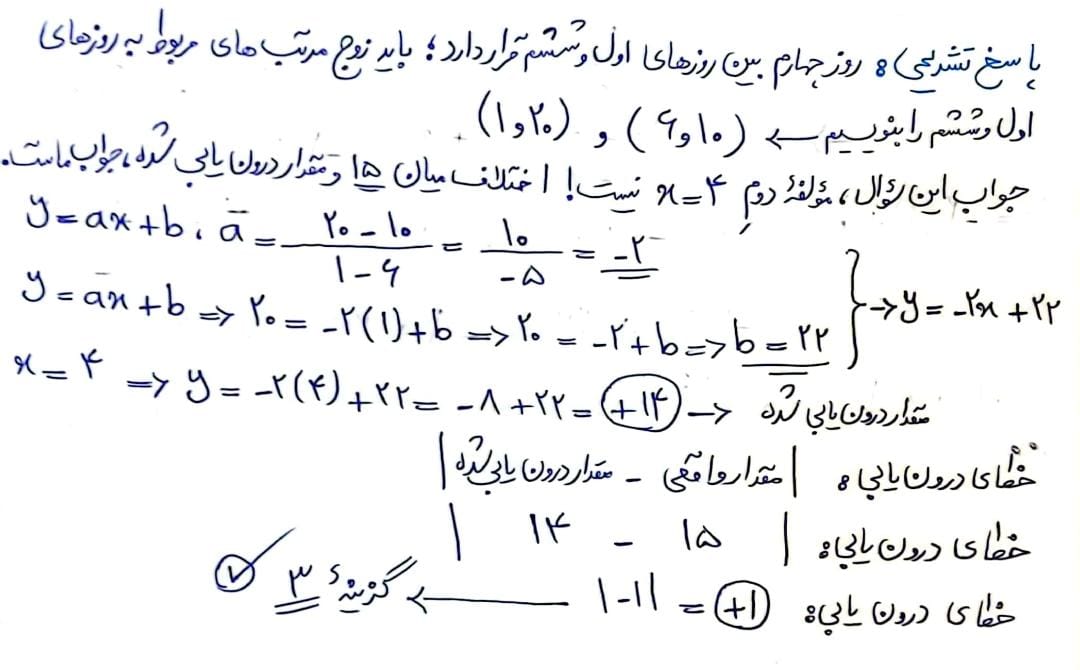 پاسخ تشریحی: روز چهارم بین روزهای اول و ششم قرار دارد؛ باید زوج مرتب های مربوط به روزهای
اول و ششم را بنویسیم ← (۶و۱۰) و (۱و۲۰)
جواب این سؤال، مؤلفهٔ دومِ x=۴ نیست! اختلاف میان ۱۵ و مقدار درون یابی شده، جواب ماست.
y=ax+b، a = (۲۰-۱۰)/(۱-۶) = ۱۰/-۵ = -۲
y=ax+b => ۲۰ = -۲(۱)+b => ۲۰ = -۲+b => b=۲۲ } → y=-۲x+۲۲
x=۴ => y=-۲(۴)+۲۲= -۸+۲۲= +۱۴ → مقدار درون یابی شده
خطای درون یابی: |مقدار واقعی - مقدار درون یابی شده|
خطای درون یابی: | ۱۴ - ۱۵ |
خطای درون یابی: |-۱| = +۱ ← گزینهٔ ۳